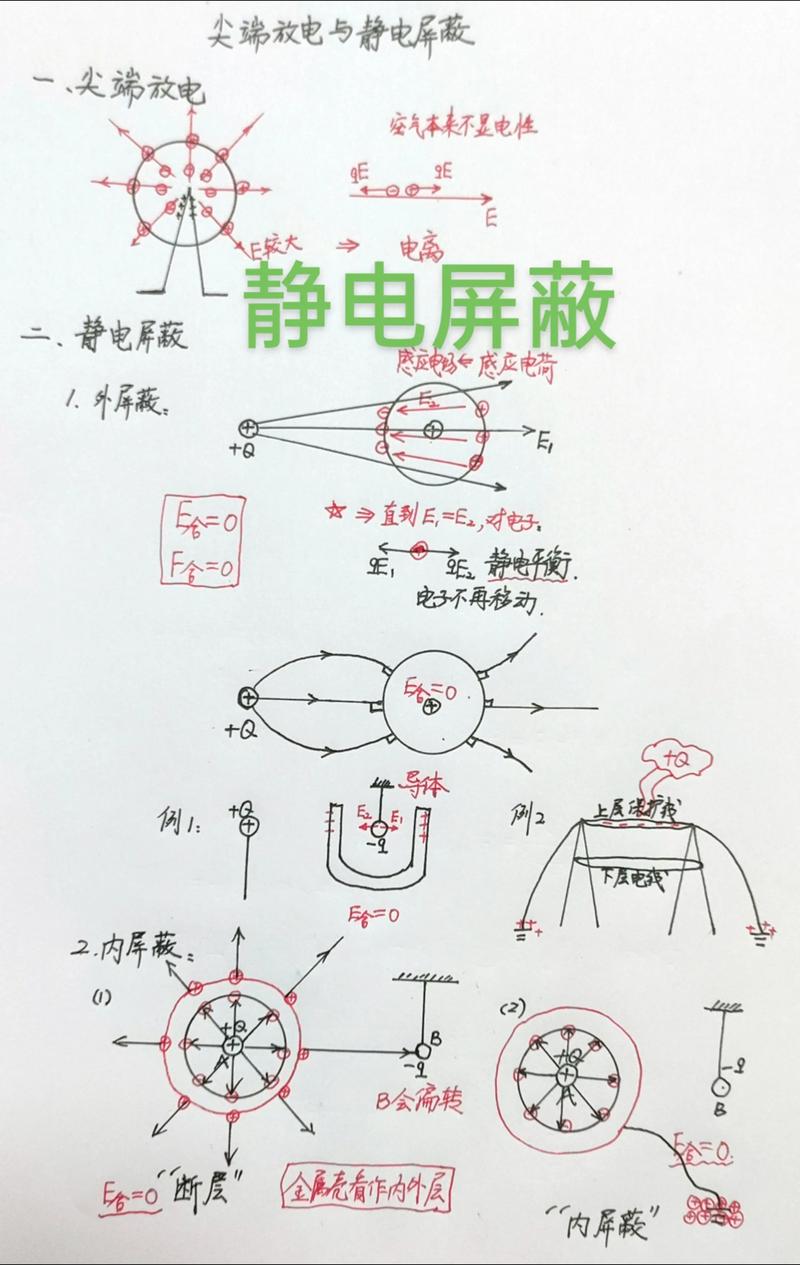 尖端放电与静电屏蔽
一、尖端放电
空气本来不显电性
qE qE
E
E较大 ⇒ 电离
静电屏蔽
二、静电屏蔽
感应电场⇐感应电荷
1. 外屏蔽:
E₂
+Q
E₁
E合=0
F合=0
☆ ⇒ 直到E₁=E₂,对电子:
qE₁ qE₂ 静电平衡.
电子不再移动.
E合=0
+Q
导体
+Q
例1:
+Q
E₂ E₁
-q
E合=0
例2
上层保护线
下层电线
2. 内屏蔽:
(1)
+Q
A
B
-q
B会偏转
E合=0 "断层"
金属壳看作内外层
(2)
+Q
A
-q
B
E合=0.
"内屏蔽"